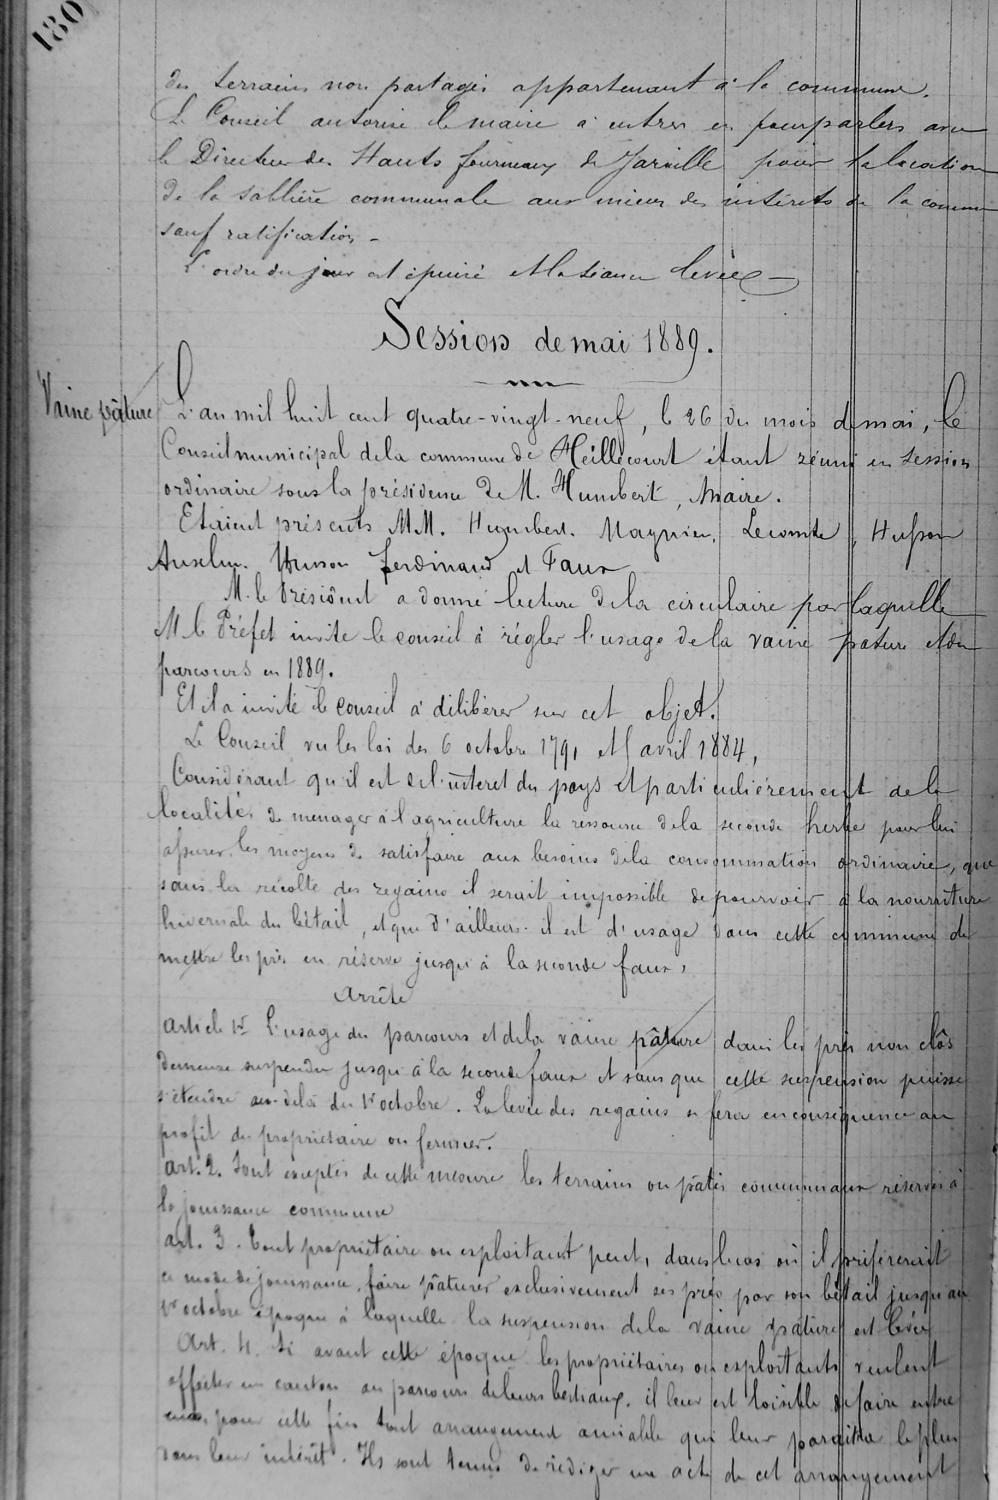 180
des terrains non partagés appartenant à la commune.
Le Conseil autorise le maire à entrer en pourparlers avec
le Directeur des Hauts fourneaux de Jarville pour la location
de la sablière communale aux mieux des intérêts de la commune
sauf ratification -
L'ordre du jour est épuisé et la séance levée -
Session de mai 1889.
Vaine pâture
L'an mil huit cent quatre-vingt-neuf, le 26 du mois de mai, le
Conseil municipal de la commune de Heillecourt étant réuni en session
ordinaire sous la présidence de M. Humbert, Maire.
Etaient présents MM. Humbert. Magnien, Lecomte, Husson
Anselm. Husson Ferdinand et Faux
M. le Président a donné lecture de la circulaire par laquelle
M le Préfet invite le conseil à régler l'usage de la vaine pature et du
parcours en 1889.
Et il a invité le conseil à délibérer sur cet objet.
Le Conseil vu les loi des 6 octobre 1791 et 5 avril 1884,
Considérant qu'il est de l'intéret du pays et particulièrement de la
localité, de menager à l'agriculture la ressource de la seconde herbe pour lui
assurer les moyens de satisfaire aux besoins de la consommation ordinaire, que
sans la récolte des regains il serait impossible de pourvoir à la nourriture
hivernale du bétail, et que d'ailleurs il est d'usage dans cette commune de
mettre les prés en réserve jusqu'à la seconde faux,
Arrête
Article 1er L'usage du parcours et de la vaine pâture dans les prés non clôs
demeure suspendu jusqu'à la seconde faux et sans que cette suspension puisse
s'étendre au-delà du 1er octobre. La levée des regains se fera en conséquence au
profit du propriétaire ou fermier.
Art. 2. Sont exceptés de cette mesure les terrains ou pâtis communaux réservés à
la jouissance commune
Art. 3. Tout propriétaire ou exploitant peut, dans le cas où il préférerait
ce mode de jouissance, faire pâturer exclusivement ses prés par son bétail jusqu'au
1er octobre époque à laquelle la suspension de la vaine pâture est levée
Art. 4. Si avant cette époque les propriétaires ou exploitants veulent
affecter un canton au parcours de leurs bestiaux, il leur est loisible de faire entre
eux, pour cette fin tout arrangement amiable qui leur paraîtra le plus
dans leur intérêt. Ils sont tenus de rédiger un acte de cet arrangement